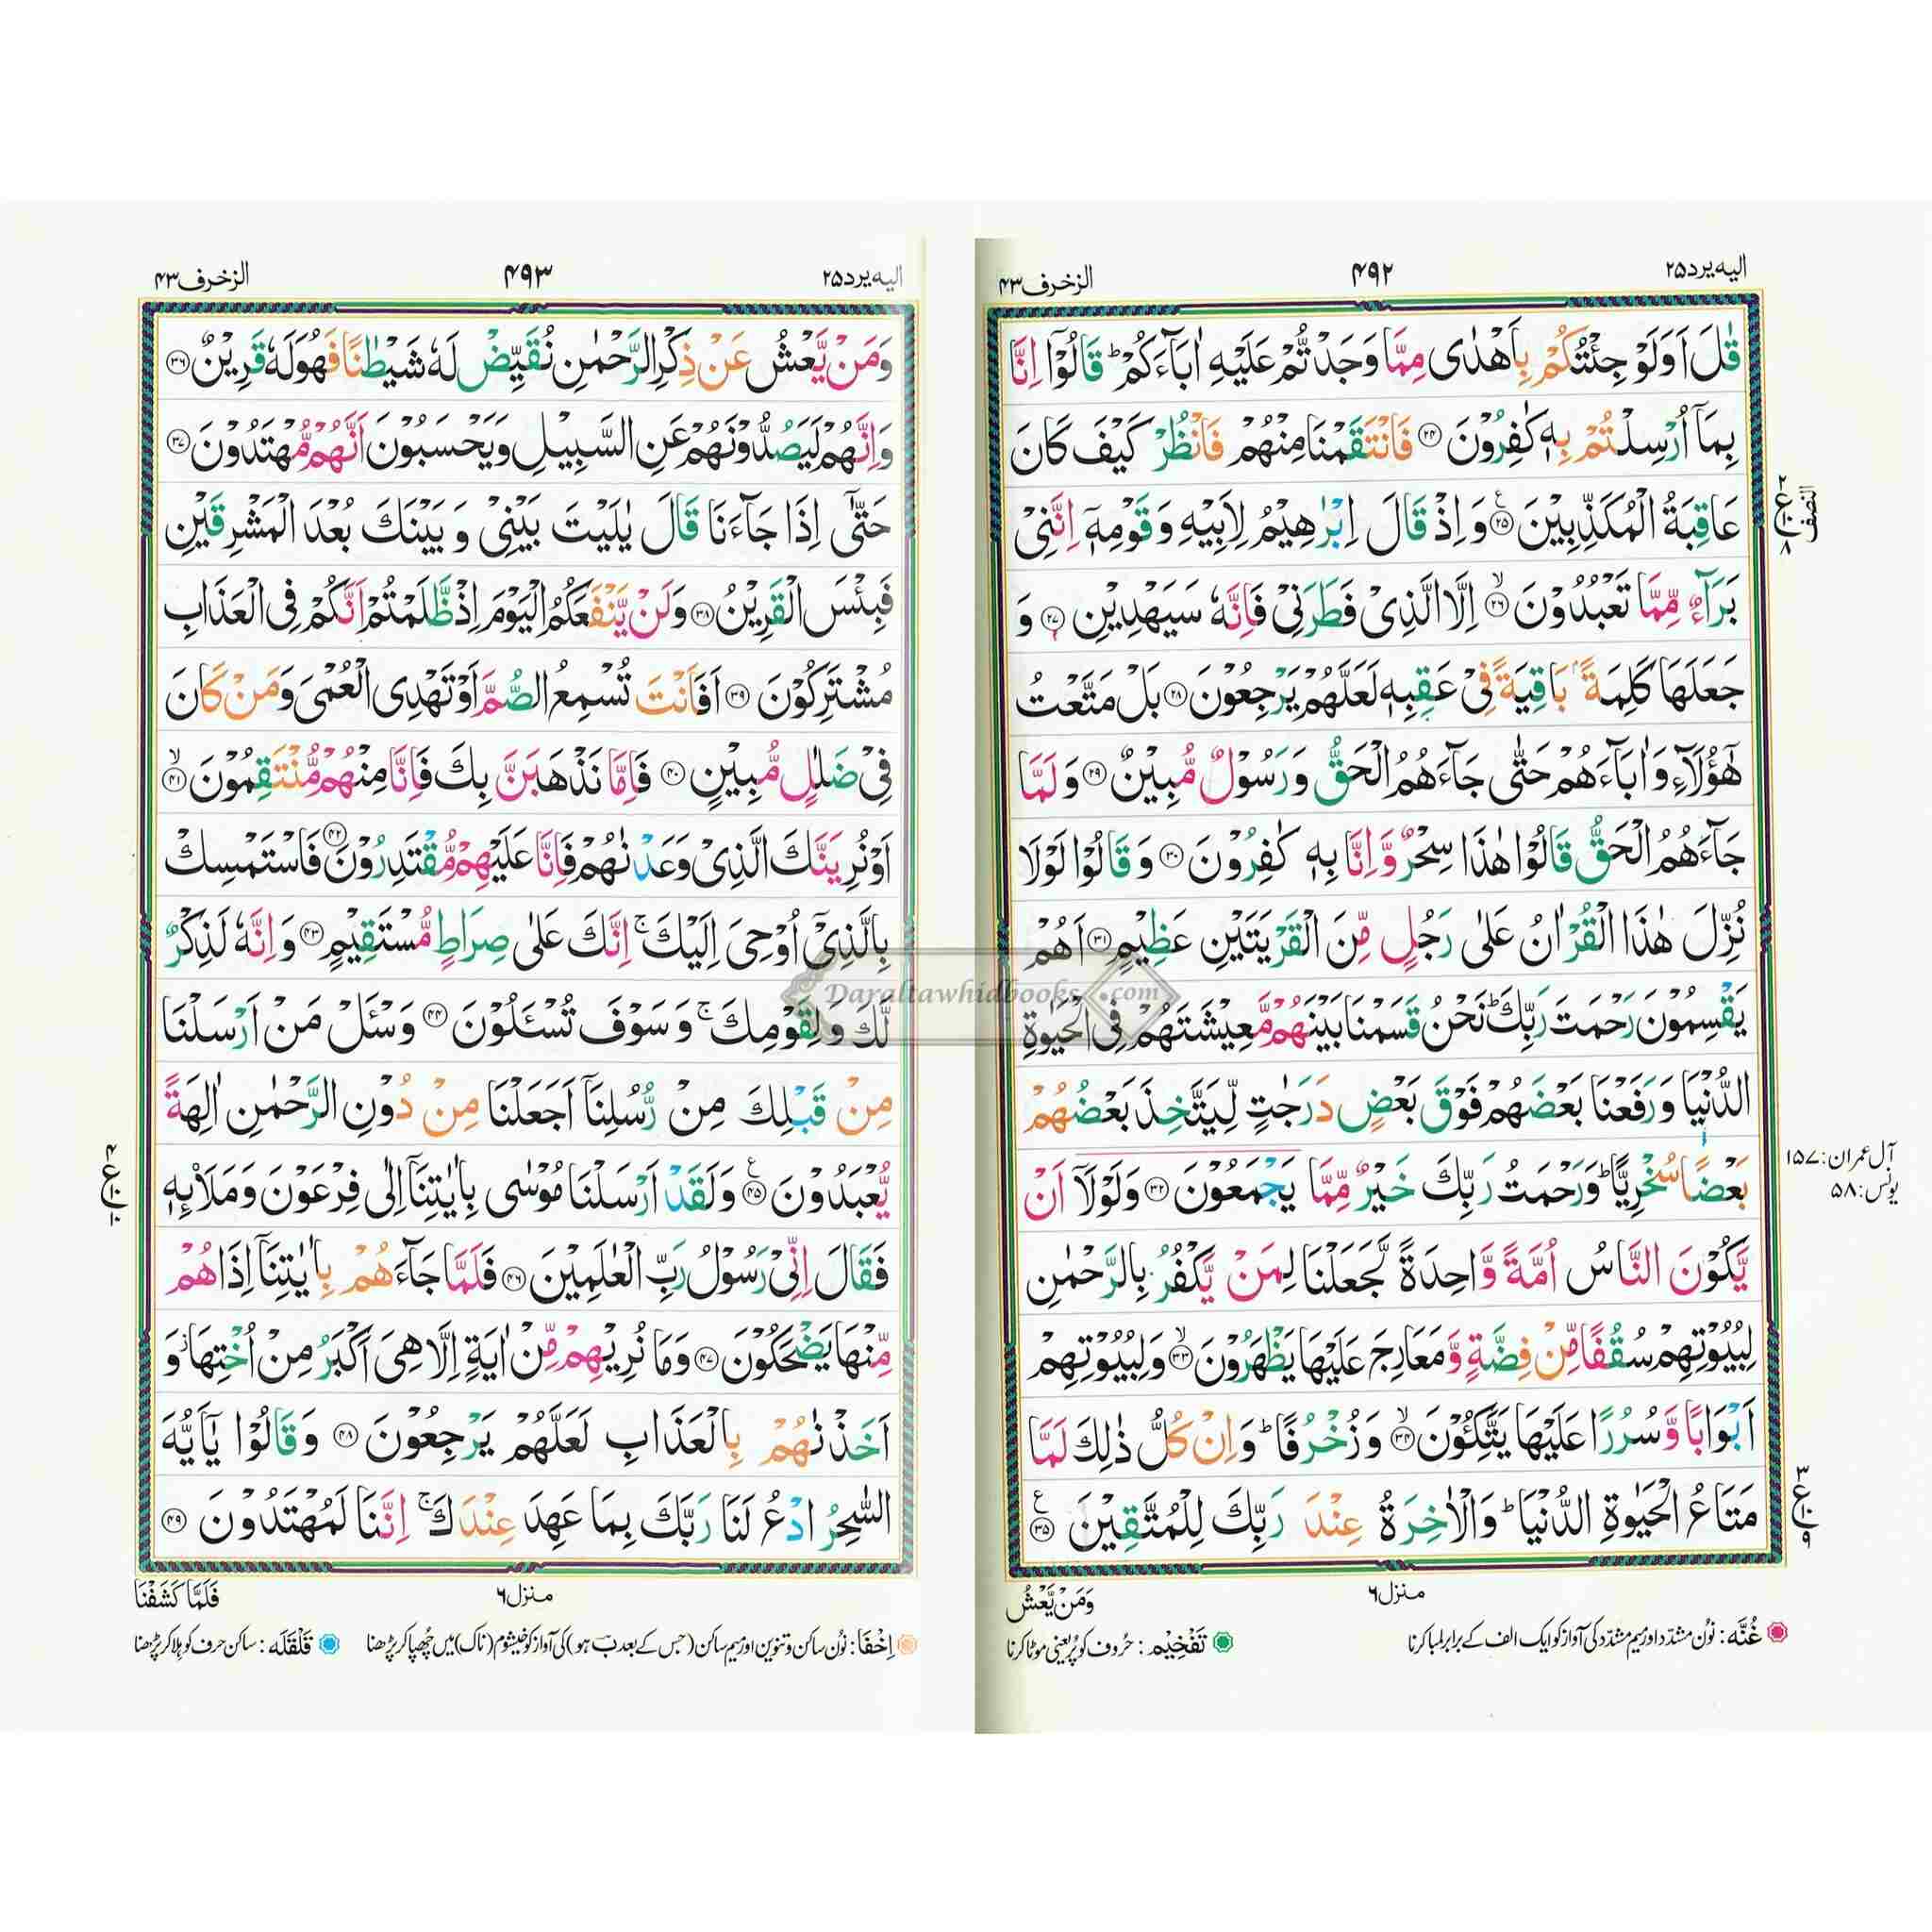 الیه یرد ۲۵
۴۹۲
الزخرف ۴۳
قٰلَ اَوَلَوْ جِئْتُكُمْ بِاَهْدٰى مِمَّا وَجَدْتُّمْ عَلَيْهِ اٰبَآءَكُمْ ؕ قَالُوْۤا اِنَّا
بِمَاۤ اُرْسِلْتُمْ بِهٖ كٰفِرُوْنَ ۝۲۴ فَانْتَقَمْنَا مِنْهُمْ فَانْظُرْ كَيْفَ كَانَ
عَاقِبَةُ الْمُكَذِّبِيْنَ ۝۲۵ وَ اِذْ قَالَ اِبْرٰهِيْمُ لِاَبِيْهِ وَ قَوْمِهٖۤ اِنَّنِىْ
بَرَآءٌ مِّمَّا تَعْبُدُوْنَ ۝۲۶ اِلَّا الَّذِىْ فَطَرَنِىْ فَاِنَّهٗ سَيَهْدِيْنِ ۝۲۷ وَ
جَعَلَهَا كَلِمَةًۢ بَاقِيَةً فِىْ عَقِبِهٖ لَعَلَّهُمْ يَرْجِعُوْنَ ۝۲۸ بَلْ مَتَّعْتُ
هٰٓؤُلَآءِ وَ اٰبَآءَهُمْ حَتّٰى جَآءَهُمُ الْحَقُّ وَ رَسُوْلٌ مُّبِيْنٌ ۝۲۹ وَ لَمَّا
جَآءَهُمُ الْحَقُّ قَالُوْا هٰذَا سِحْرٌ وَّ اِنَّا بِهٖ كٰفِرُوْنَ ۝۳۰ وَ قَالُوْا لَوْلَا
نُزِّلَ هٰذَا الْقُرْاٰنُ عَلٰى رَجُلٍ مِّنَ الْقَرْيَتَيْنِ عَظِيْمٍ ۝۳۱ اَهُمْ
يَقْسِمُوْنَ رَحْمَتَ رَبِّكَ ؕ نَحْنُ قَسَمْنَا بَيْنَهُمْ مَّعِيْشَتَهُمْ فِى الْحَيٰوةِ
الدُّنْيَا وَ رَفَعْنَا بَعْضَهُمْ فَوْقَ بَعْضٍ دَرَجٰتٍ لِّيَتَّخِذَ بَعْضُهُمْ
بَعْضًا سُخْرِيًّا ؕ وَ رَحْمَتُ رَبِّكَ خَيْرٌ مِّمَّا يَجْمَعُوْنَ ۝۳۲ وَ لَوْلَاۤ اَنْ
يَّكُوْنَ النَّاسُ اُمَّةً وَّاحِدَةً لَّجَعَلْنَا لِمَنْ يَّكْفُرُ بِالرَّحْمٰنِ
لِبُيُوْتِهِمْ سُقُفًا مِّنْ فِضَّةٍ وَّ مَعَارِجَ عَلَيْهَا يَظْهَرُوْنَ ۝۳۳ وَ لِبُيُوْتِهِمْ
اَبْوَابًا وَّ سُرُرًا عَلَيْهَا يَتَّكِـُٔوْنَ ۝۳۴ وَ زُخْرُفًا ؕ وَ اِنْ كُلُّ ذٰلِكَ لَمَّا
مَتَاعُ الْحَيٰوةِ الدُّنْيَا ؕ وَ الْاٰخِرَةُ عِنْدَ رَبِّكَ لِلْمُتَّقِيْنَ ۝۳۵
ع
۲
۸
النصف
آل عمران: ۱۵۷
یونس: ۵۸
ع
۳
۹
منزل ۶
وَمَنْ يَّعْشُ
غُنَّه: نون مشدّد اور میم مشدّد کی آواز کو ایک الف کے برابر لمبا کرنا
تَفْخِيْم: حروف کو پُر یعنی موٹا کرنا
الیه یرد ۲۵
۴۹۳
الزخرف ۴۳
وَ مَنْ يَّعْشُ عَنْ ذِكْرِ الرَّحْمٰنِ نُقَيِّضْ لَهٗ شَيْطٰنًا فَهُوَ لَهٗ قَرِيْنٌ ۝۳۶
وَ اِنَّهُمْ لَيَصُدُّوْنَهُمْ عَنِ السَّبِيْلِ وَ يَحْسَبُوْنَ اَنَّهُمْ مُّهْتَدُوْنَ ۝۳۷
حَتّٰۤى اِذَا جَآءَنَا قَالَ يٰلَيْتَ بَيْنِىْ وَ بَيْنَكَ بُعْدَ الْمَشْرِقَيْنِ
فَبِئْسَ الْقَرِيْنُ ۝۳۸ وَ لَنْ يَّنْفَعَكُمُ الْيَوْمَ اِذْ ظَّلَمْتُمْ اَنَّكُمْ فِى الْعَذَابِ
مُشْتَرِكُوْنَ ۝۳۹ اَفَاَنْتَ تُسْمِعُ الصُّمَّ اَوْ تَهْدِى الْعُمْىَ وَ مَنْ كَانَ
فِىْ ضَلٰلٍ مُّبِيْنٍ ۝۴۰ فَاِمَّا نَذْهَبَنَّ بِكَ فَاِنَّا مِنْهُمْ مُّنْتَقِمُوْنَ ۝۴۱
اَوْ نُرِيَنَّكَ الَّذِىْ وَعَدْنٰهُمْ فَاِنَّا عَلَيْهِمْ مُّقْتَدِرُوْنَ ۝۴۲ فَاسْتَمْسِكْ
بِالَّذِىْۤ اُوْحِىَ اِلَيْكَ ۚ اِنَّكَ عَلٰى صِرَاطٍ مُّسْتَقِيْمٍ ۝۴۳ وَ اِنَّهٗ لَذِكْرٌ
لَّكَ وَ لِقَوْمِكَ ۚ وَ سَوْفَ تُسْـَٔلُوْنَ ۝۴۴ وَ سْـَٔلْ مَنْ اَرْسَلْنَا
مِنْ قَبْلِكَ مِنْ رُّسُلِنَاۤ اَجَعَلْنَا مِنْ دُوْنِ الرَّحْمٰنِ اٰلِهَةً
يُّعْبَدُوْنَ ۝۴۵ وَ لَقَدْ اَرْسَلْنَا مُوْسٰى بِاٰيٰتِنَاۤ اِلٰى فِرْعَوْنَ وَ مَلَا۟ئِهٖ
فَقَالَ اِنِّىْ رَسُوْلُ رَبِّ الْعٰلَمِيْنَ ۝۴۶ فَلَمَّا جَآءَهُمْ بِاٰيٰتِنَاۤ اِذَا هُمْ
مِّنْهَا يَضْحَكُوْنَ ۝۴۷ وَ مَا نُرِيْهِمْ مِّنْ اٰيَةٍ اِلَّا هِىَ اَكْبَرُ مِنْ اُخْتِهَا ؗ وَ
اَخَذْنٰهُمْ بِالْعَذَابِ لَعَلَّهُمْ يَرْجِعُوْنَ ۝۴۸ وَ قَالُوْا يٰۤاَيُّهَ
السّٰحِرُ ادْعُ لَنَا رَبَّكَ بِمَا عَهِدَ عِنْدَكَ ۚ اِنَّنَا لَمُهْتَدُوْنَ ۝۴۹
منزل ۶
فَلَمَّا كَشَفْنَا
اِخْفَا: نون ساکن و تنوین اور میم ساکن (جس کے بعد ب ہو) کی آواز کو خیشوم (ناک) میں چُھپا کر پڑھنا
قَلْقَلَه: ساکن حرف کو ہلا کر پڑھنا
Daraltawhidbooks.com